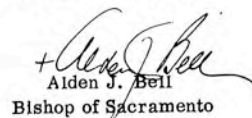 + Alden J. Bell
Alden J. Bell
Bishop of Sacramento